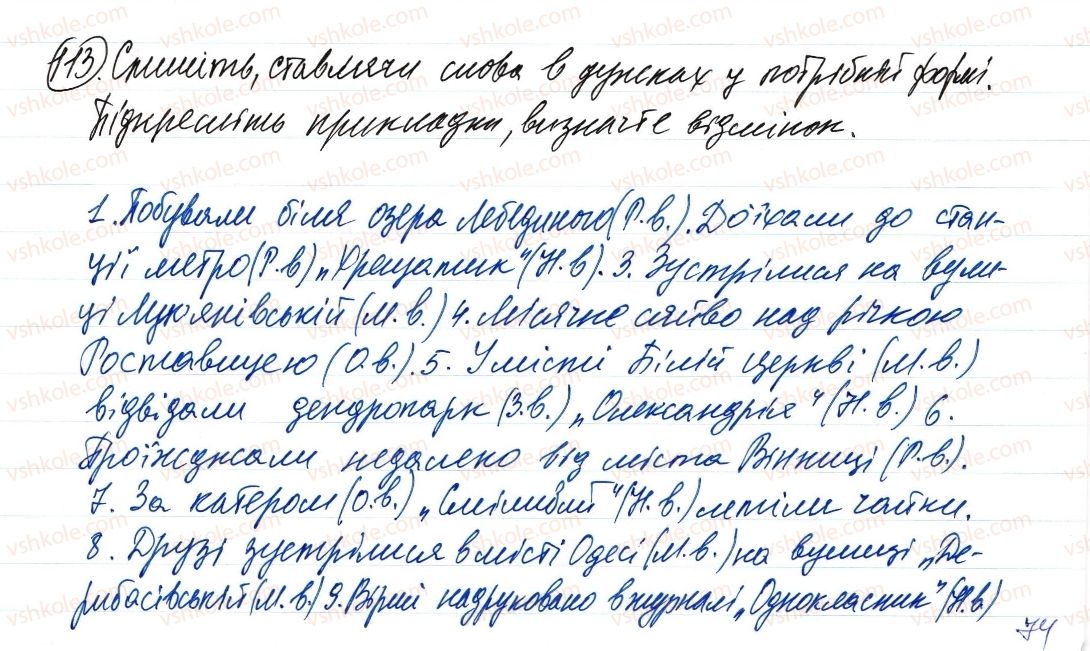 113. Спишіть, ставлячи слова в дужках у потрібній формі.
Підкресліть прикладки, визначте відмінок.
1. Побували біля озера Лебединого (Р.в.). Доїхали до стан-
ції метро (Р.в) „Хрещатик" (Н.в). 3. Зустрілися на вули-
ці Лук'янівській (М.в.) 4. Місячне сяйво над річкою
Роставицею (О.в.). 5. У місті Білій Церкві (М.в.)
відвідали дендропарк (З.в.) „Олександрія" (Н.в.) 6.
Проїжджали недалеко від міста Вінниці (Р.в.).
7. За катером (О.в.) „Сміливий" (Н.в.) летіли чайки.
8. Друзі зустрілися в місті Одесі (М.в.) на вулиці „Де-
рибасівській (М.в.) 9. Вірші надруковано в журналі „Однокласник" (Н.в)
74
vshkole.com